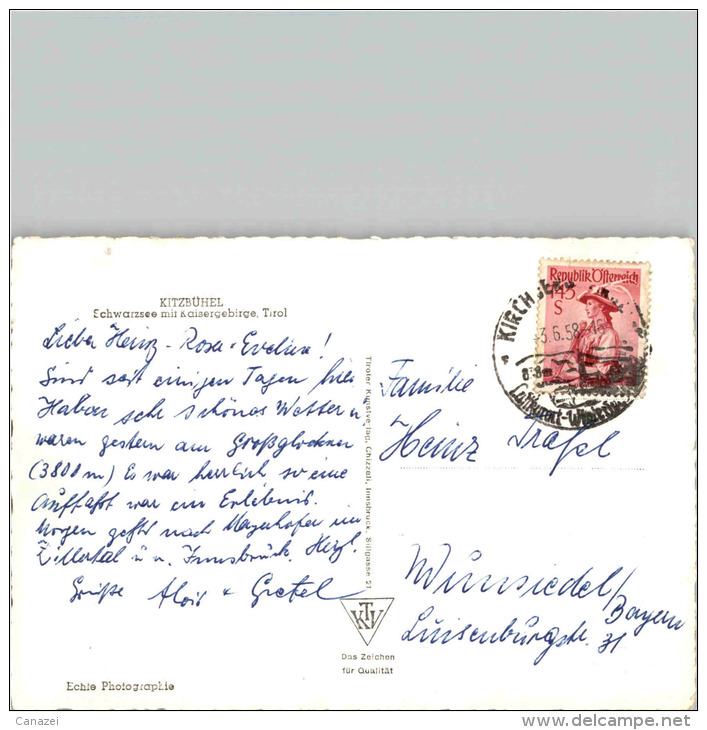 KITZBÜHEL
Schwarzsee mit Kaisergebirge, Tirol
Lieber Heinz - Rosa - Eveline!
Sind seit einigen Tagen hier
Haben sehr schönes Wetter u
waren gestern am Großglockner
(3800 m) Es war herrlich so eine
Auffahrt war ein Erlebnis.
Morgen gehts nach Mayrhofen im
Zillertal u n. Innsbruck. Herzl.
Grüße Alois + Gretel
Echte Photographie
Tiroler Kunstverlag, Chizzali, Innsbruck, Sillgasse 21
KTV
Das Zeichen
für Qualität
Republik Österreich
1.45
S
KIRCHBERG
-3.6.58
Luftkurort-
Familie
Heinz
Wunsiedel/
Bayern
Luisenburgstr. 31
Canazei
delcampe.net